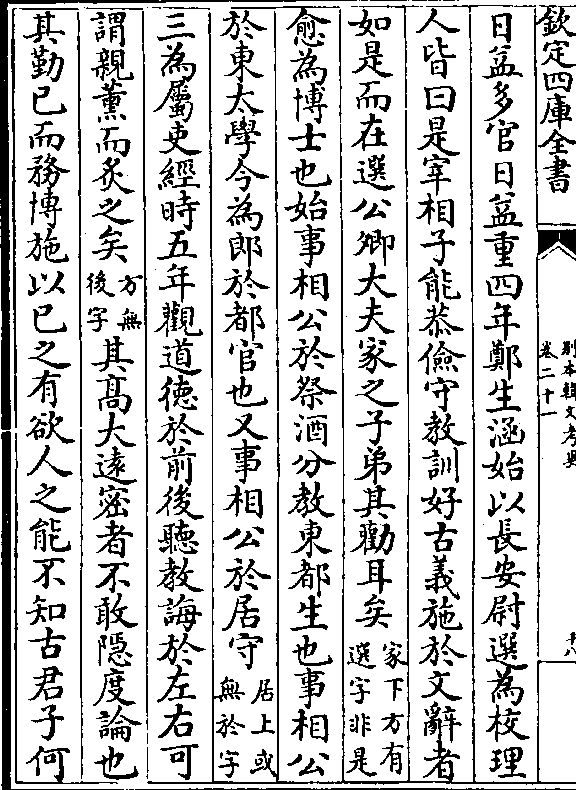 欽定四庫全書
別本韓文考異
卷二十一
十八
日益多官日益重四年鄭生涵始以長安尉選為校理
人皆曰是宰相子能恭儉守教訓好古義施於文辭者
如是而在選公卿大夫家之子弟其勸耳矣家下方有選字非是
愈為博士也始事相公於祭酒分教東都生也事相公
於東太學今為郎於都官也又事相公於居守居上或無於字
三為屬吏經時五年觀道徳於前後聽教誨於左右可
謂親薰而炙之矣方無後字其髙大遠密者不敢隱度論也
其勤已而務博施以已之有欲人之能不知古君子何